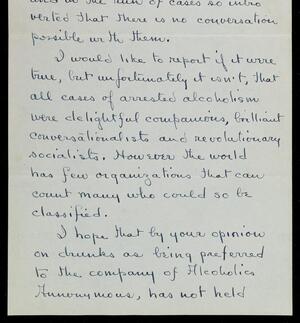 and in the run of cases so intro
verted that there is no conversation
possible with them.
I would like to report if it were
true, but unfortunately it isn't, that
all cases of arrested alcoholism
were delightful companions, brilliant
conversationalists and revolutionary
socialists. However the world
has few organizations that can
count many who could so be
classified.
I hope that by your opinion
on drunks as being preferred
to the company of Alcoholics
Annonymous, has not held